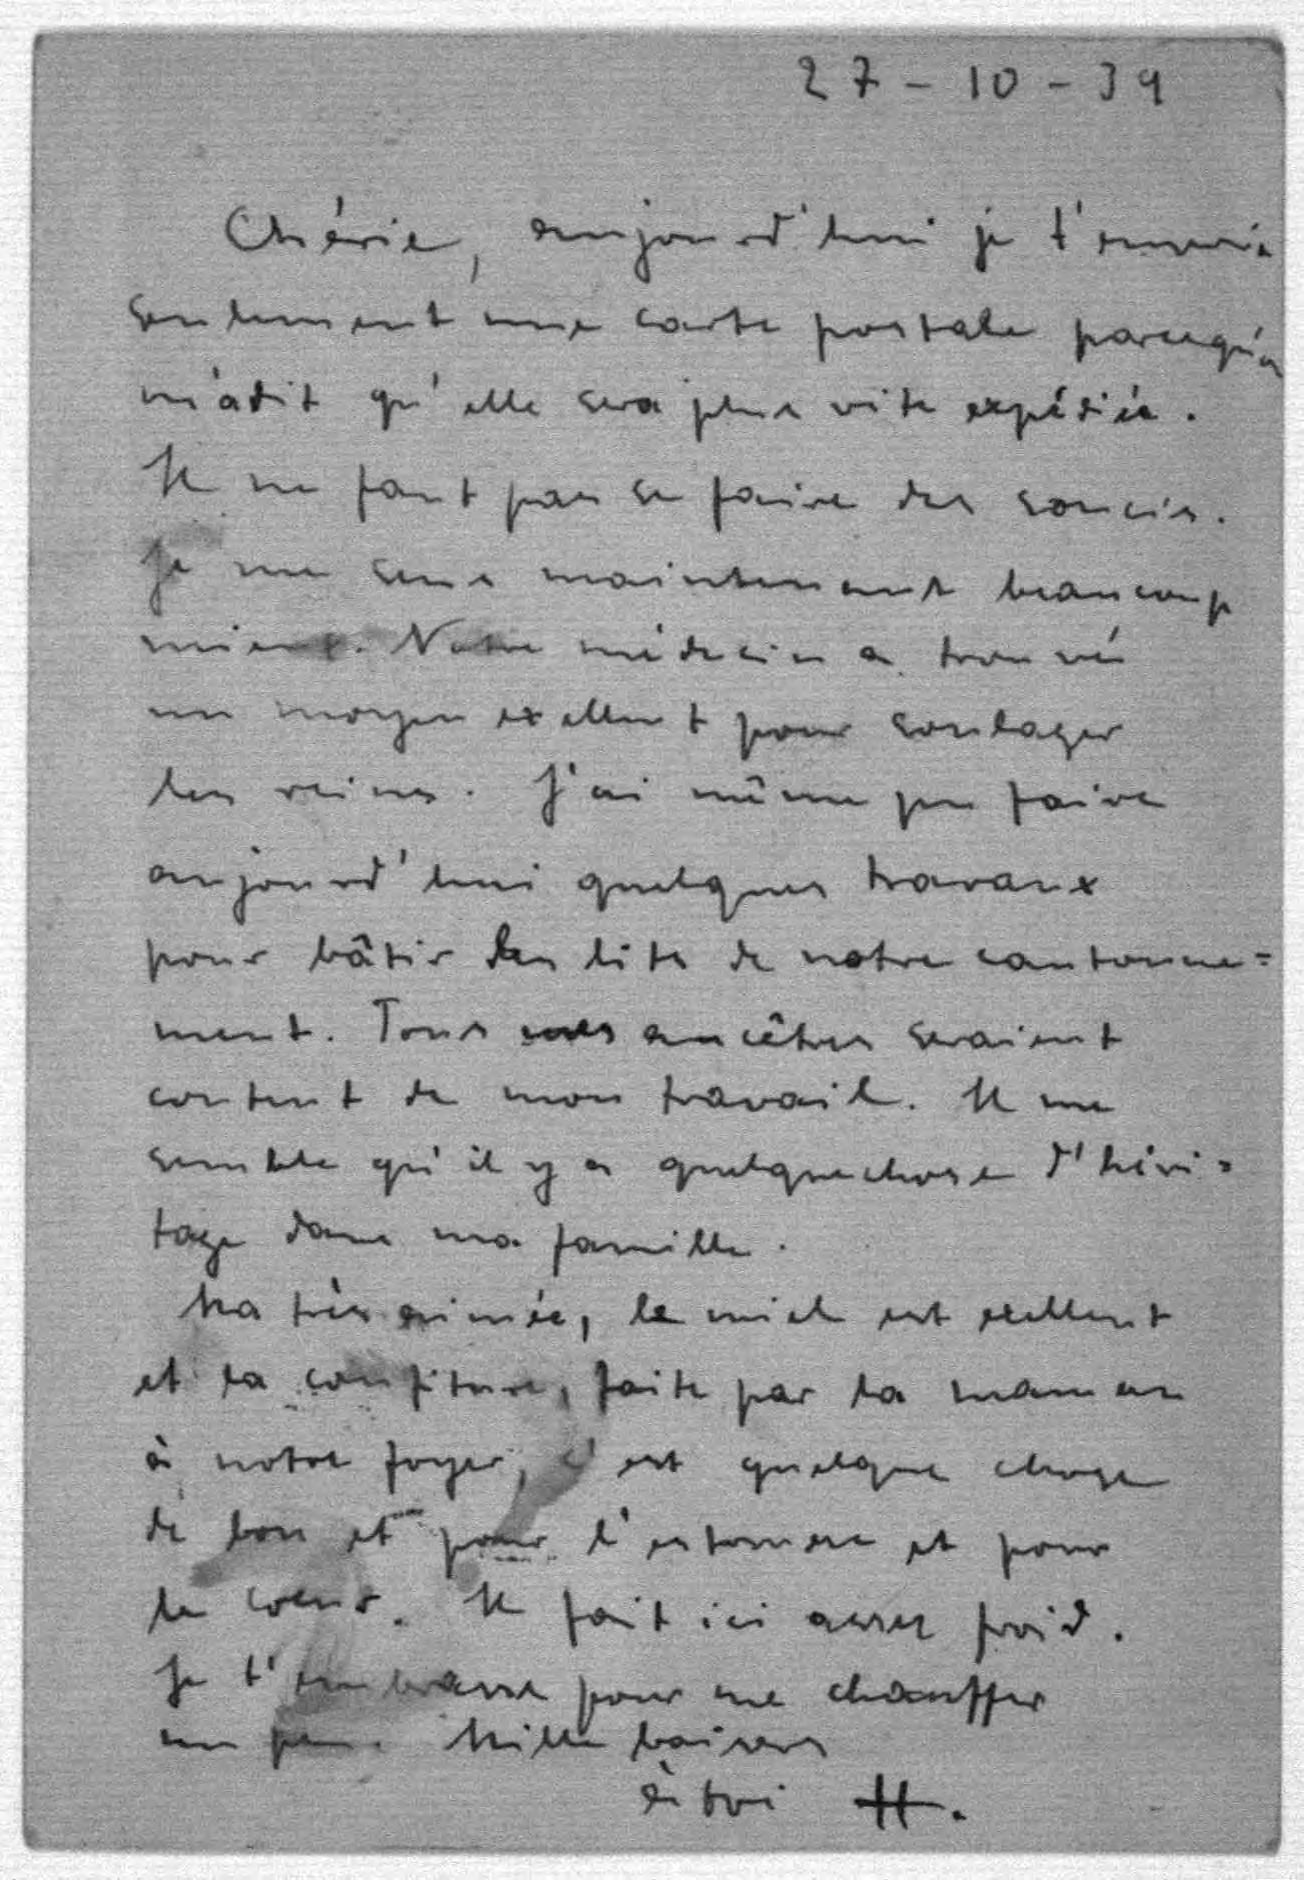 27 - 10 - 39
Chérie, aujourd'hui je t'envoie
seulement une carte postale parcequ'on
m'a dit qu'elle sera plus vite expédiée.
Il ne faut pas se faire des soucis.
Je me sens maintenant beaucoup
mieux. Notre médecin a trouvé
un moyen exellent pour soulager
les reins. J'ai même pu faire
aujourd'hui quelques travaux
pour bâtir des lits de notre cantonne=
ment. Tous mes ancêtres seraient
content de mon travail. Il me
semble qu'il y a quelquechose d'héri=
tage dans ma famille.
Ma très aimée, le miel est exellent
et la confiture, faite par la maman
à notre foyer, c'est quelque chose
de bon et pour l'estomac et pour
le coeur. Il fait ici assez froid.
Je t'embrasse pour me chauffer
un peu. Mille baisers
à toi H.